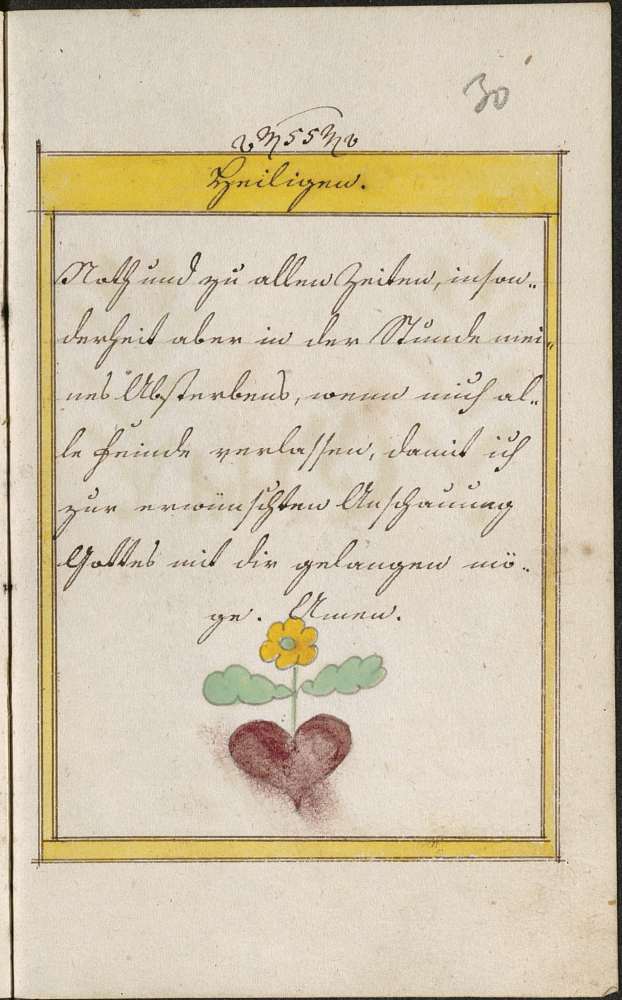 30
55
Heiligen.
Noth und zu allen Zeiten, inson-
derheit aber in der Stunde mei-
nes Absterbens, wenn mich al-
le Feinde verlassen, damit ich
zur erwünschten Anschauung
Gottes mit dir gelangen mö-
ge. Amen.